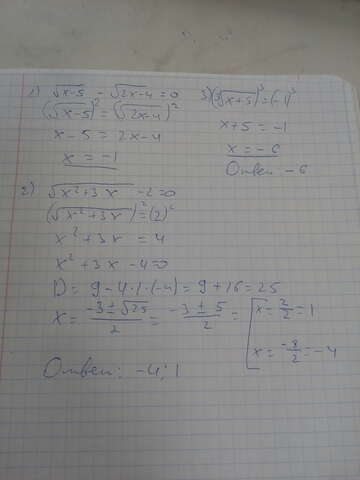 1) √x-5 - √2x-4=0
(√x-5)² = (√2x-4)²
x-5 = 2x-4
x = -1
3) (³√x+5)³=(-1)³
x+5 = -1
x = -6
Ответ -6
2) √x²+3x -2=0
(√x²+3x)²=(2)²
x²+3x = 4
x²+3x -4=0
D = 9-4·1·(-4) = 9+16=25
x = -3±√25/2 = -3±5/2 = [x=2/2=1
x=-8/2=-4
Ответ: -4; 1